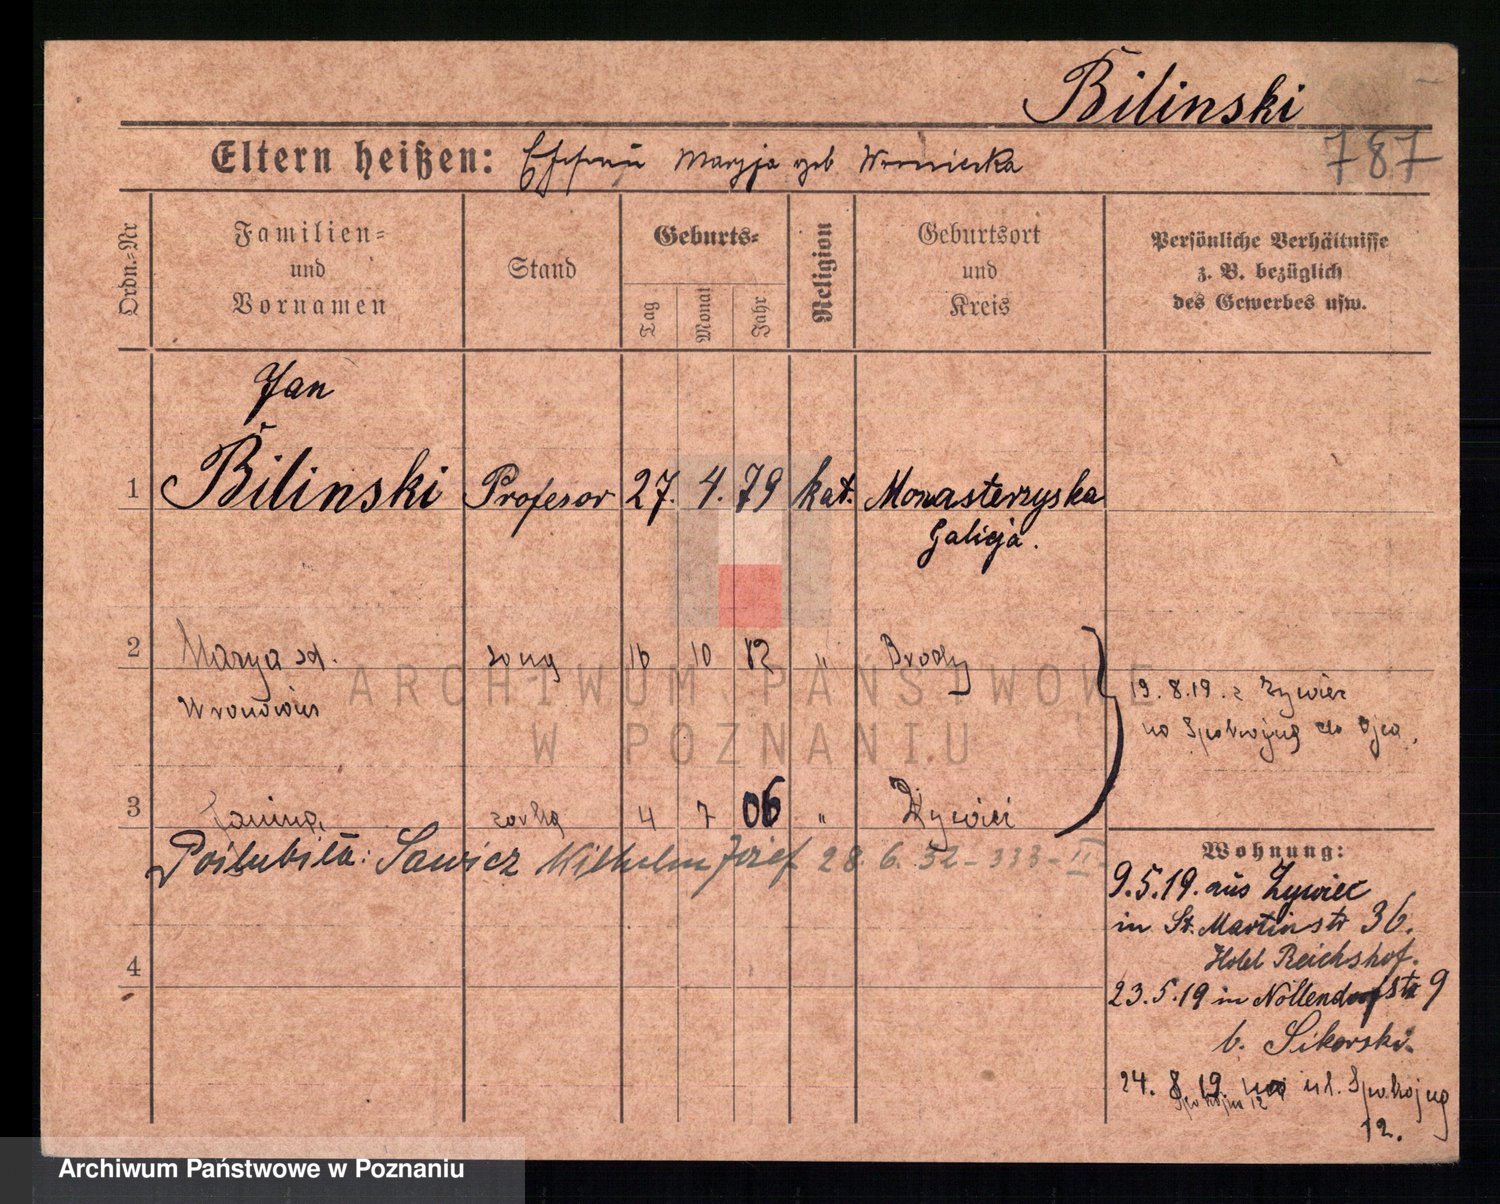 Bilinski
787
Eltern heißen: Maryja geb Wroniecka
Ordn.-Nr
Familien=
und
Vornamen
Stand
Geburts=
Tag
Monat
Jahr
Religion
Geburtsort
und
Kreis
Persönliche Verhältnisse
z. B. bezüglich
des Gewerbes usw.
Jan
1 Bilinski Profesor 27. 4. 79 kat. Monasterzyska
Galicja.
2 Marya zd. zona 16 10 82 " Brody
19.8.19. z Zywiec
na Spokojną do Ojca.
3 Janina corka 4 7 06 " Zywiec
Poślubiła: Sawicz Wilhelm Józef 28 6. 32 - 333 - II
4
Wohnung:
9.5.19. aus Zywiec
in St. Martinstr 36.
Hotel Reichshof.
23.5.19 in Nollendorfstr 9
b. Sikorski.
24. 8 19 na ul. Spokojną
Spokojna 12
12.
ARCHIWUM PAŃSTWOWE
W POZNANIU
Archiwum Państwowe w Poznaniu